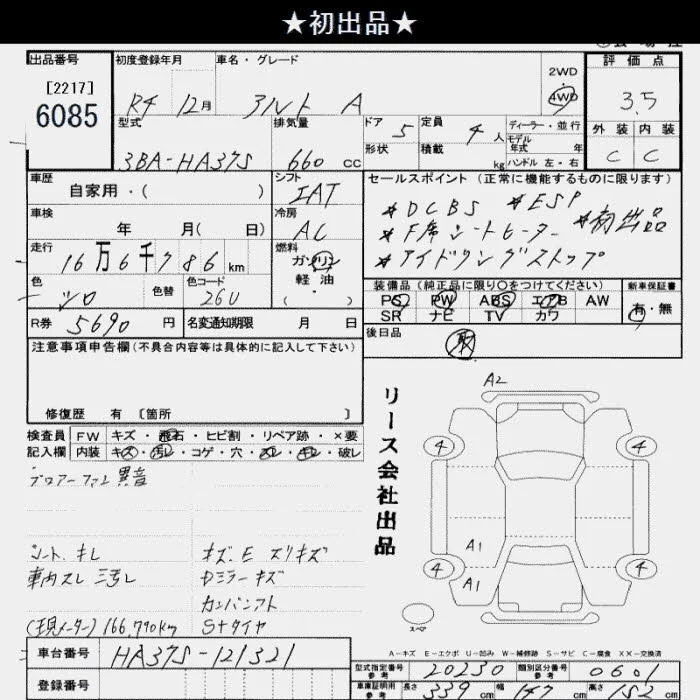 ★初出品★
出品番号
[2217]
6085
初度登録年月
R4 12月
車名・グレード
アルト A
2WD
4WD
評価点
3.5
外装 内装
C C
型式
3BA-HA37S
排気量
660 cc
ドア 5
定員 4 人
形状
積載 kg
ディーラー・並行
モデル
年式 年
ハンドル 左・右
車歴
自家用・( )
シフト
IAT
セールスポイント (正常に機能するものに限ります)
*DCBS *ESP
*F席シートヒーター *初出品
*アイドリングストップ
車検
年 月( 日)
冷房
AC
走行
16万6千786km
燃料
ガソリン
軽・油
( ・ )
色
シロ
色替
色コード
26U
装備品 (純正品に限り○をつけてください)
PS PW ABS エアB AW
SR ナビ TV カワ
新車保証書
有・無
R券 5690 円
名変通知期限 月 日
後日品
取
注意事項申告欄 (不具合内容等は具体的に記入して下さい)
修復歴 有 〔箇所 〕
検査員
記入欄
FW キズ・飛石・ヒビ割・リペア跡・×要
内装 キズ・汚レ・コゲ・穴・スレ・キレ・破レ
ブロアーファン異音
シート、キレ
車内スレ 汚レ
(現メーター) 166,790km
キズ、E スリキズ
Dミラーキズ
カンバンアト
S+タイヤ
リース会社出品
A2
4 4
A1
4 4
A1
スペア
A−キズ E−エクボ U−凹み W−補修跡 S−サビ C−腐食 XX−交換済
車台番号 HA37S-121321
登録番号
型式指定番号
参考
20230
類別区分番号
参考
0601
車庫証明用
参考
長さ 339 cm 幅 147 cm 高さ 152 cm